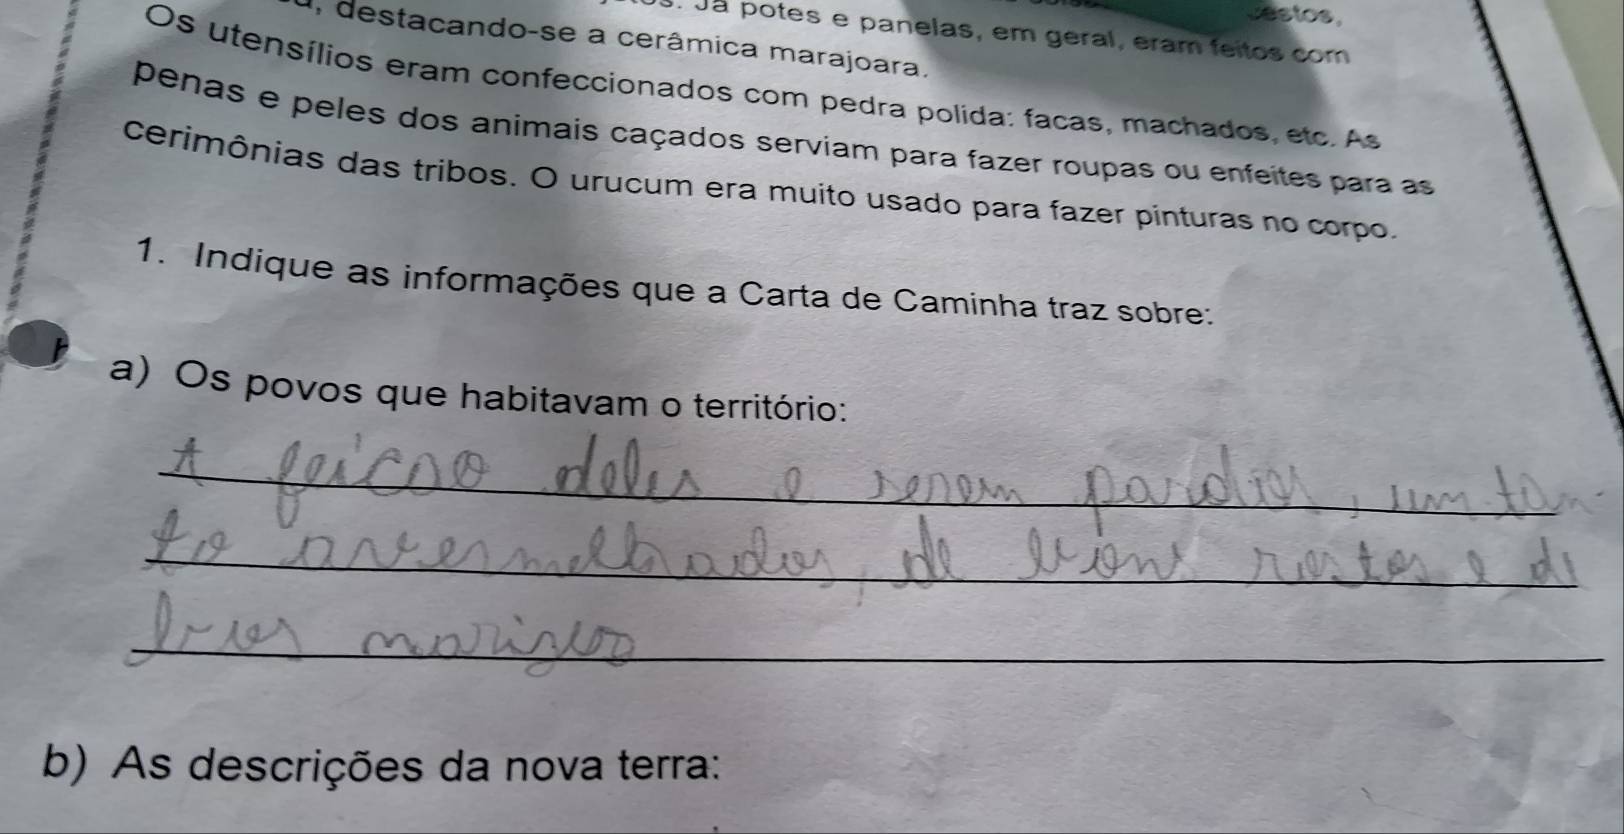 destacando-se a cerâmica marajoara. Já potes e panelas, em geral, eram feitos com
Os utensílios eram confeccionados com pedra polida: facas, machados, etc. As
penas e peles dos animais caçados serviam para fazer roupas ou enfeites para as
cerimônias das tribos. O urucum era muito usado para fazer pinturas no corpo.
1. Indique as informações que a Carta de Caminha traz sobre:
a) Os povos que habitavam o território:
A feicao deles e serem pardos, um tan
to avermelhados, de bons rostos e de
bons narizes
b) As descrições da nova terra: